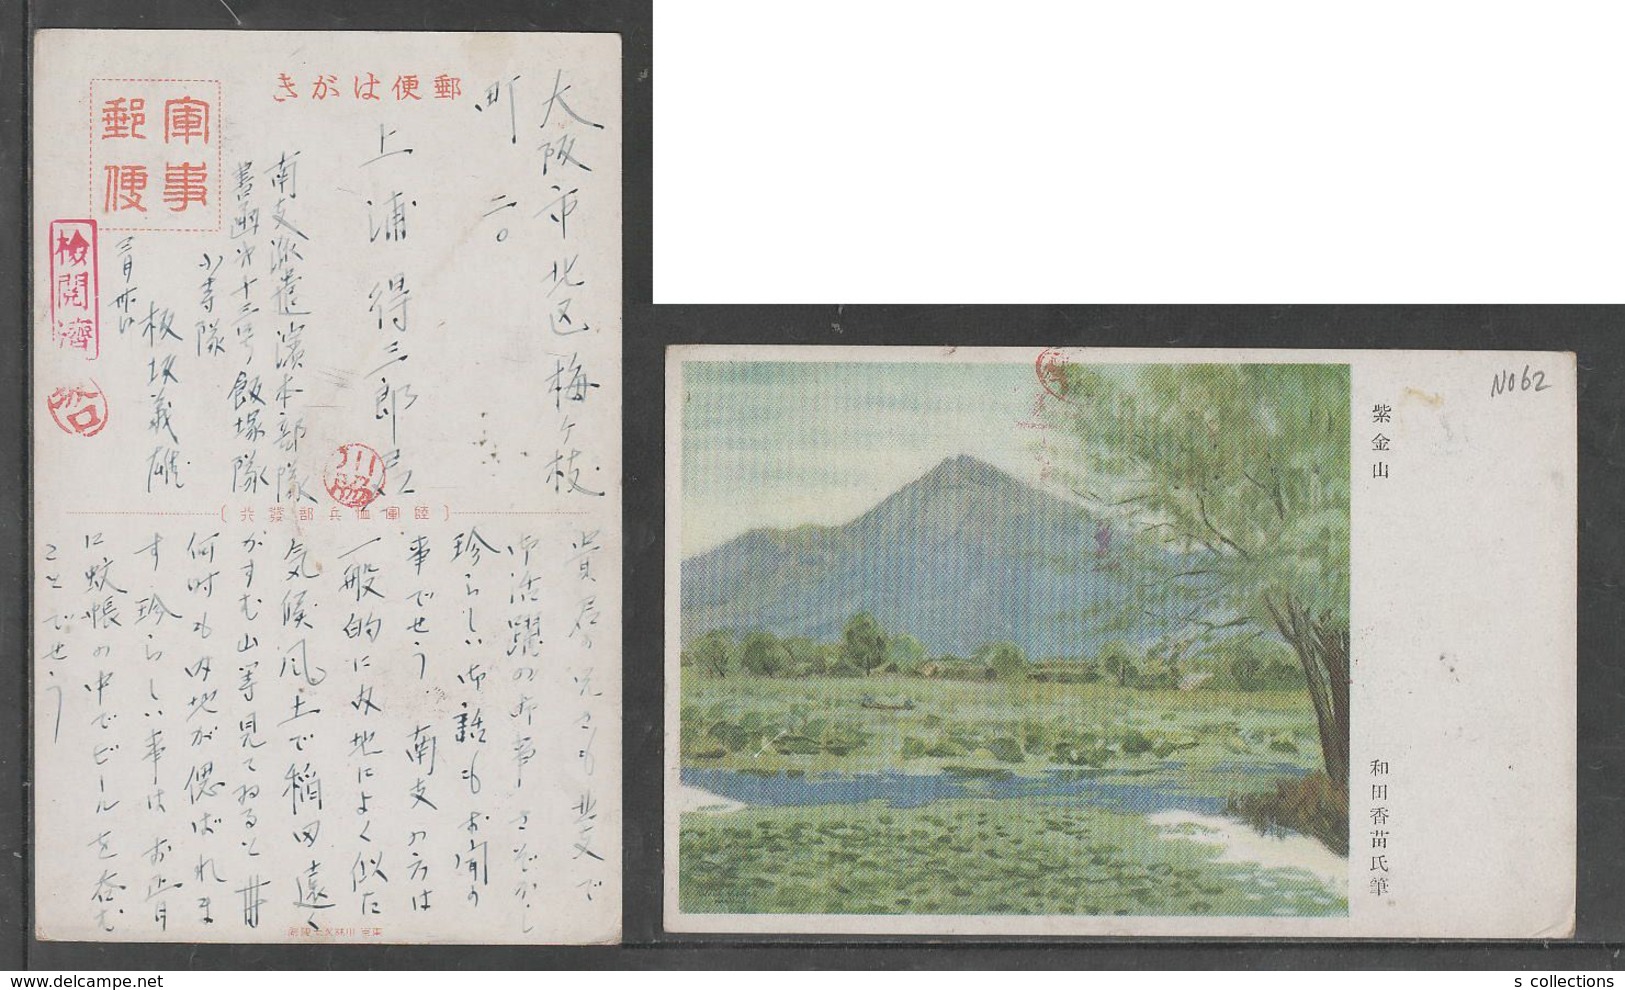 郵便はがき
軍事郵便
検閲済
大阪市北区梅ヶ枝
町 二〇
上浦得三郎 君
南支派遣濱本部隊
書函第十三号飯塚隊
小寺隊
板坂義雄
三月廿日
陸軍恤兵部發行
貴君の兄さも北支で
御活躍のお事さぞかし
珍らしい御話もお聞の
事でせう 南支の方は
一般的に内地によく似た
気候風土で稲田遠く
がすむ山等見てゐると
何時も内地が偲ばれま
す 珍らしい事はお正月
に蚊帳の中でビールを呑む
ことでせう
紫金山
和田香苗氏筆
NO62
s collections